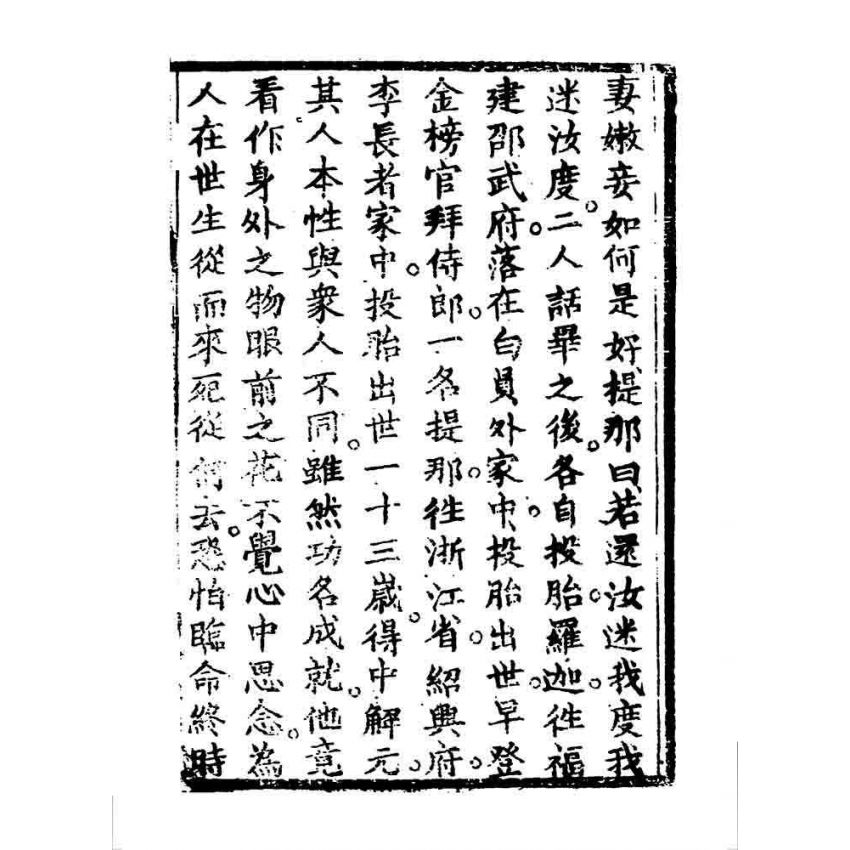 妻嫩妾如何是好提那曰若還汝迷我度我
迷汝度二人話畢之後各自投胎羅迦徃福
建邵武府落在白員外家中投胎出世早登
金榜官拜侍郎一名提那徃浙江省紹興府
李長者家中投胎出世一十三歲得中解元
其人本性與衆人不同雖然功名成就他竟
看作身外之物眼前之花不覺心中思念為
人在世生從而來死從何去恐怕臨命終時